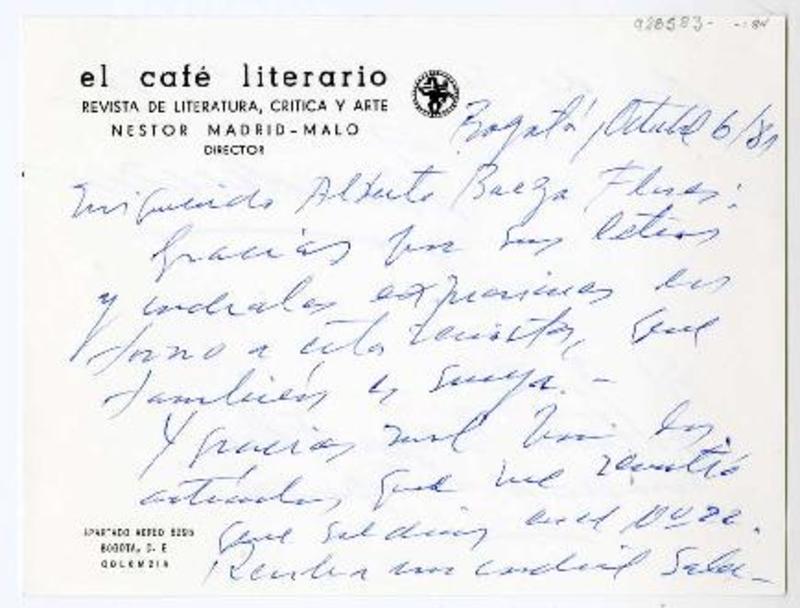 928583-
el café literario
REVISTA DE LITERATURA, CRITICA Y ARTE
NESTOR MADRID-MALO
DIRECTOR
Bogotá, Octubre 6/81
Mi querido Alberto Baeza Flores:
Gracias por sus letras
y cordiales expresiones en
torno a esta revista, que
también es suya.-
Y gracias mil por los
artículos que me remitió
que saldrán en el No 22.
Reciba un cordial salu-
APARTADO AEREO 5295
BOGOTA, D. E
COLOMBIA